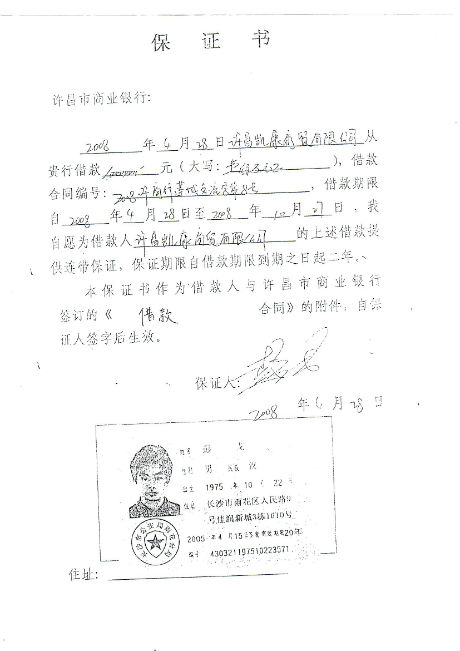 保 证 书
许昌市商业银行:
2008 年4月28日许昌凯康商贸有限公司从
贵行借款 元(大写: ),借款
合同编号: ,借款期限
自2008年4月28日至2008年10月27日,我
自愿为借款人许昌凯康商贸有限公司的上述借款提
供连带保证,保证期限自借款期限到期之日起二年。
本保证书作为借款人与许昌市商业银行
签订的《 借款 合同》的附件,自保
证人签字后生效。
保证人:
2008 年4月28日
姓名
性别 男 民族 汉
出生 1975 年 10 月 22 日
住址 长沙市雨花区人民路9
号佳润新城3栋1610号
2005 年 4 月 15 日签发有效期限20年
编号 430321197510223571
住址: